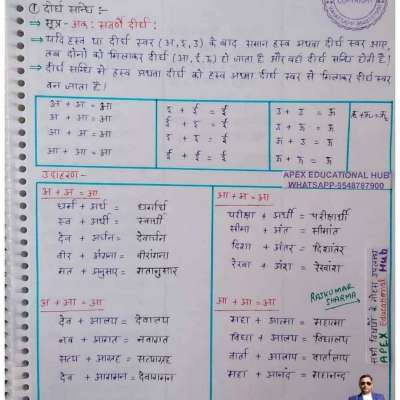 ① दीर्घ सन्धि :-
⇒ सूत्र - अकः सवर्णे दीर्घः :
⇒ यदि ह्रस्व या दीर्घ स्वर (अ, इ, उ) के बाद समान ह्रस्व अथवा दीर्घ स्वर आए,
तब दोनों को मिलाकर दीर्घ (आ, ई, ऊ) हो जाता है और वहां दीर्घ सन्धि होती है।
⇒ दीर्घ सन्धि में ह्रस्व अथवा दीर्घ को ह्रस्व अथवा दीर्घ स्वर से मिलाकर दीर्घ स्वर
बन जाता है।
अ + अ = आ
अ + आ = आ
आ + अ = आ
आ + आ = आ
इ + इ = ई
इ + ई = ई
ई + इ = ई
ई + ई = ई
उ + उ = ऊ
उ + ऊ = ऊ
ऊ + उ = ऊ
ऊ + ऊ = ऊ
उदाहरण -
APEX EDUCATIONAL HUB
WHATSAPP-9548787900
अ + अ = आ
धर्म + अर्थ = धर्मार्थ
स्व + अर्थी = स्वार्थी
देव + अर्चन = देवार्चन
वीर + अंगना = वीरांगना
मत + अनुसार = मतानुसार
आ + अ = आ
परीक्षा + अर्थी = परीक्षार्थी
सीमा + अंत = सीमांत
दिशा + अंतर = दिशांतर
रेखा + अंश = रेखांश
RAJKUMAR
SHARMA
अ + आ = आ
देव + आलय = देवालय
नव + आगत = नवागत
सत्य + आग्रह = सत्याग्रह
देव + आगमन = देवागमन
आ + आ = आ
महा + आत्मा = महात्मा
विद्या + आलय = विद्यालय
वार्ता + आलाप = वार्तालाप
महा + आनंद = महानन्द
APEX Educational Hub